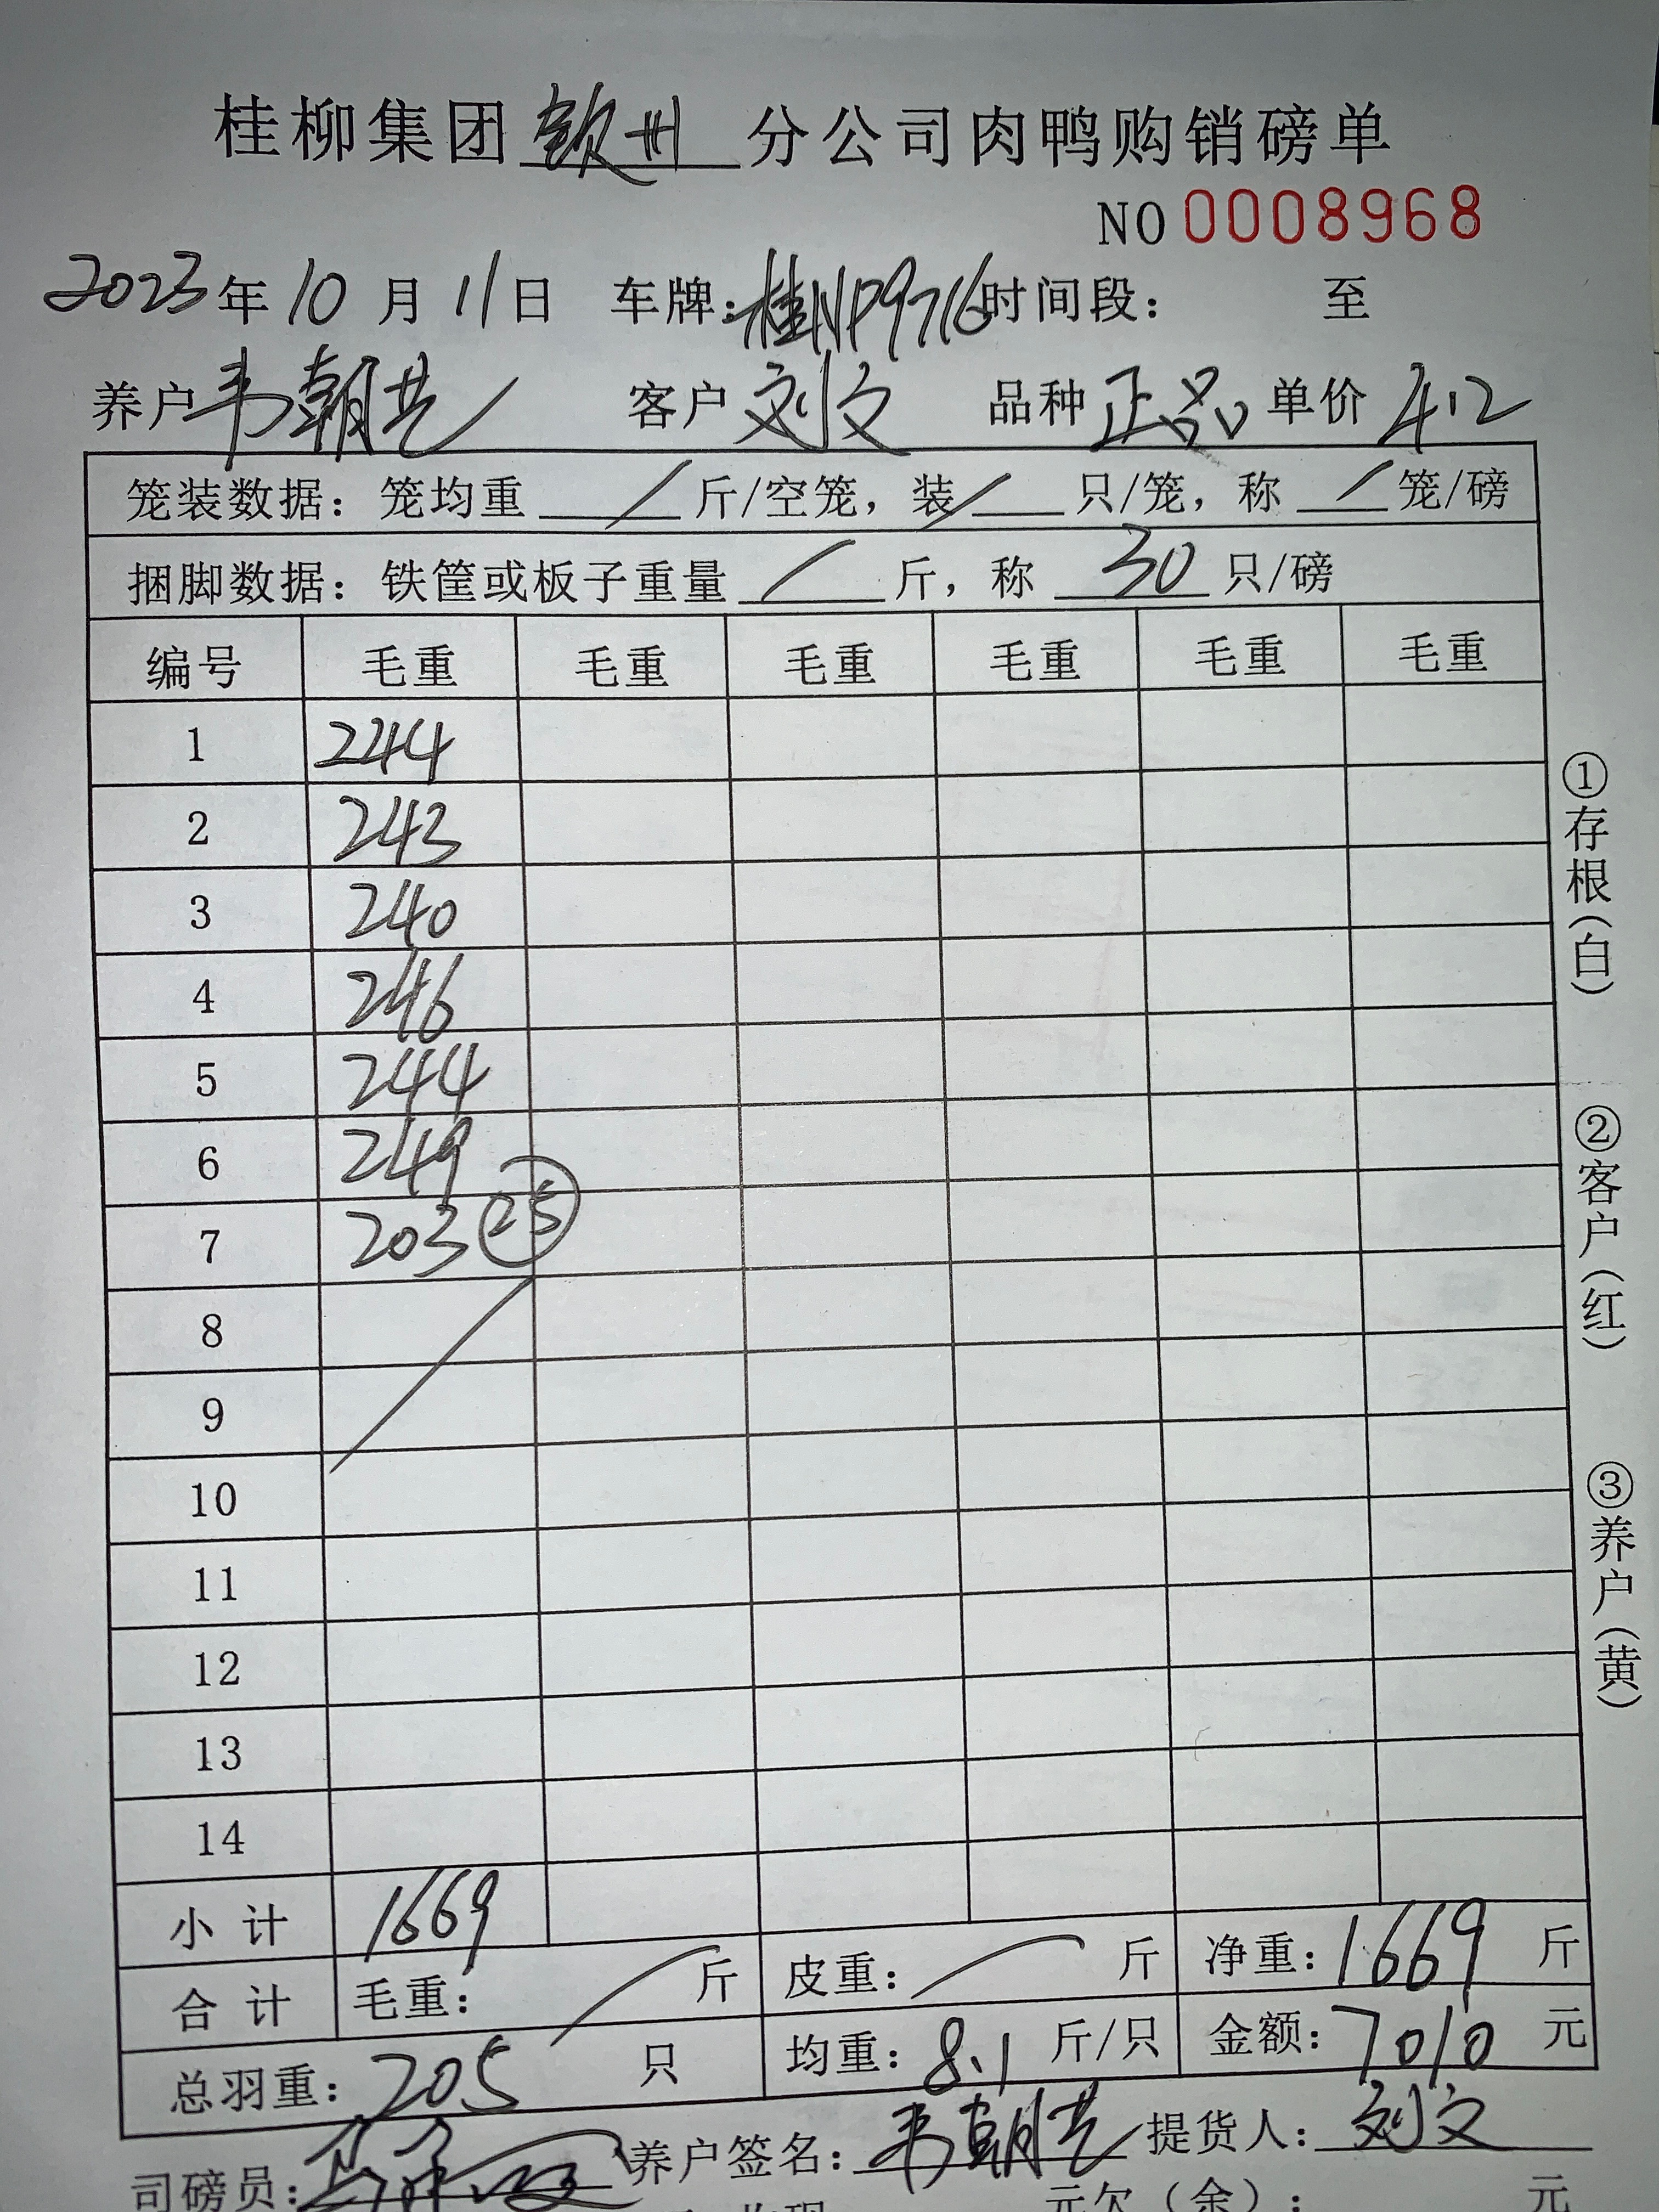 桂柳集团钦州分公司肉鸭购销磅单
NO 0008968
2023年10月11日 车牌:桂NP9716时间段: 至
养户韦朝艺 客户刘文 品种正品 单价4.2
笼装数据: 笼均重/斤/空笼, 装/只/笼, 称/笼/磅
捆脚数据: 铁筐或板子重量/斤, 称30只/磅
编号 毛重 毛重 毛重 毛重 毛重 毛重
1 244
2 243
3 240
4 246
5 244
6 249
7 203 25
8
9
10
11
12
13
14
小计 1669
合计 毛重: /斤 皮重: /斤 净重:1669斤
总羽重:205只 均重:8.1斤/只 金额:7010元
司磅员: 养户签名:韦朝艺 提货人:刘文
元欠(余): 元
①存根(白)
②客户(红)
③养户(黄)